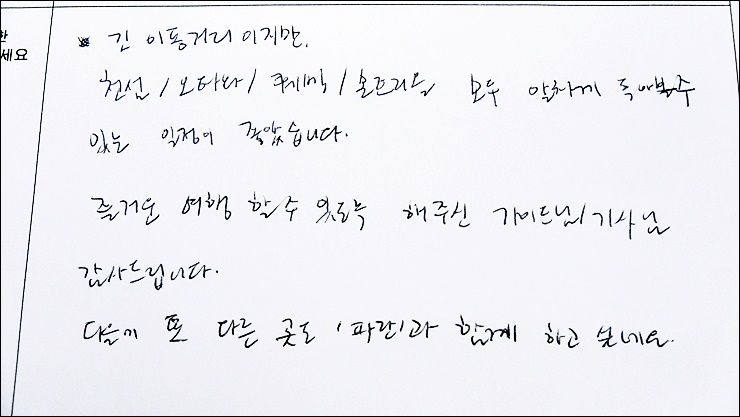 한
세요
* 긴 이동거리이지만,
천섬 / 오타와 / 퀘벡 / 몬트리올 모두 알차게 돌아볼수
있는 일정이 좋았습니다.
즐거운 여행 할 수 있도록 해주신 가이드님/기사님
감사드립니다.
다음에 또 다른 곳도 '파란'과 함께 하고 싶네요.